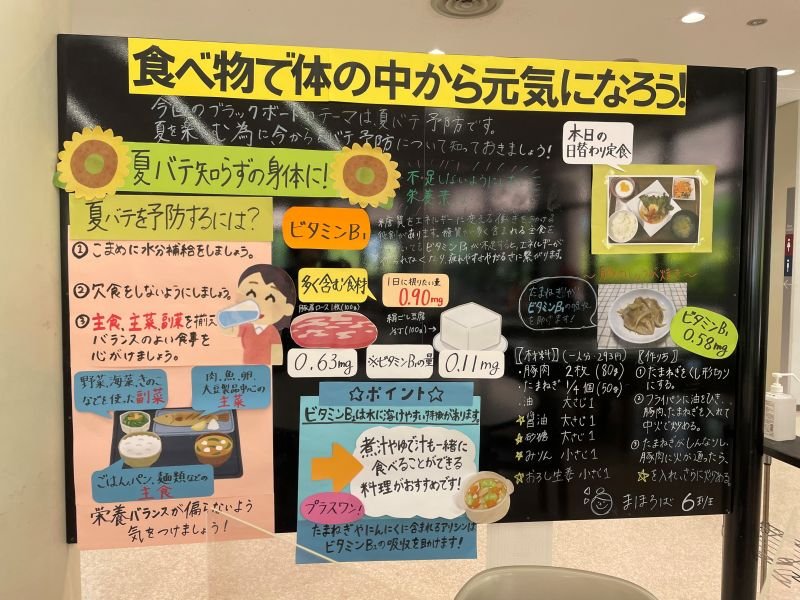 食べ物で体の中から元気になろう!
今回のブラックボードのテーマは、夏バテ予防です。
夏を楽しむ為に今から夏バテ予防について知っておきましょう!
本日の
日替わり定食
夏バテ知らずの身体に!
夏バテを予防するには?
① こまめに水分補給をしましょう。
② 欠食をしないようにしましょう。
③ 主食、主菜、副菜を揃え
バランスのよい食事を
心がけましょう。
野菜、海藻、きのこ
などを使った副菜
肉、魚、卵、
大豆製品中心の
主菜
ごはん、パン、麺類などの
主食
栄養バランスが偏らないよう
気をつけましょう!
ビタミンB₁
不足しないようにしたい
栄養素
糖質をエネルギーに変える働きを助ける
役割があります。糖質が多く含まれる主食を
ビタミンB₁が不足すると、エネルギーが
疲れやすやだるさに繋がります。
多く含む食材
1日に摂りたい量
0.90mg
豚肩ロース1枚(100g)
絹ごし豆腐
(100g)→
0.63mg
※ビタミンB₁の量
0.11mg
☆ポイント☆
ビタミンB₁は水に溶けやすい特徴があります。
煮汁やゆで汁も一緒に
食べることができる
料理がおすすめです!
プラスワン!
たまねぎやにんにくに含まれるアリシンは
ビタミンB₁の吸収を助けます!
たまねぎが
ビタミンB₁の吸収
を助けます!
ビタミンB₁
0.58mg
【材料】(一人分-293円)
・豚肉 2枚(80g)
・たまねぎ 1/4個(50g)
・油 大さじ1
☆醤油 大さじ1
☆砂糖 大さじ1
☆みりん 小さじ1
☆おろし生姜 小さじ1
【作り方】
①たまねぎをくし形切り
にする。
②フライパンに油をひき、
豚肉、たまねぎを入れて
中火で炒める。
③たまねぎがしんなりし、
豚肉に火が通ったら、
☆を入れ、さらに炒める。
まほろば 6班